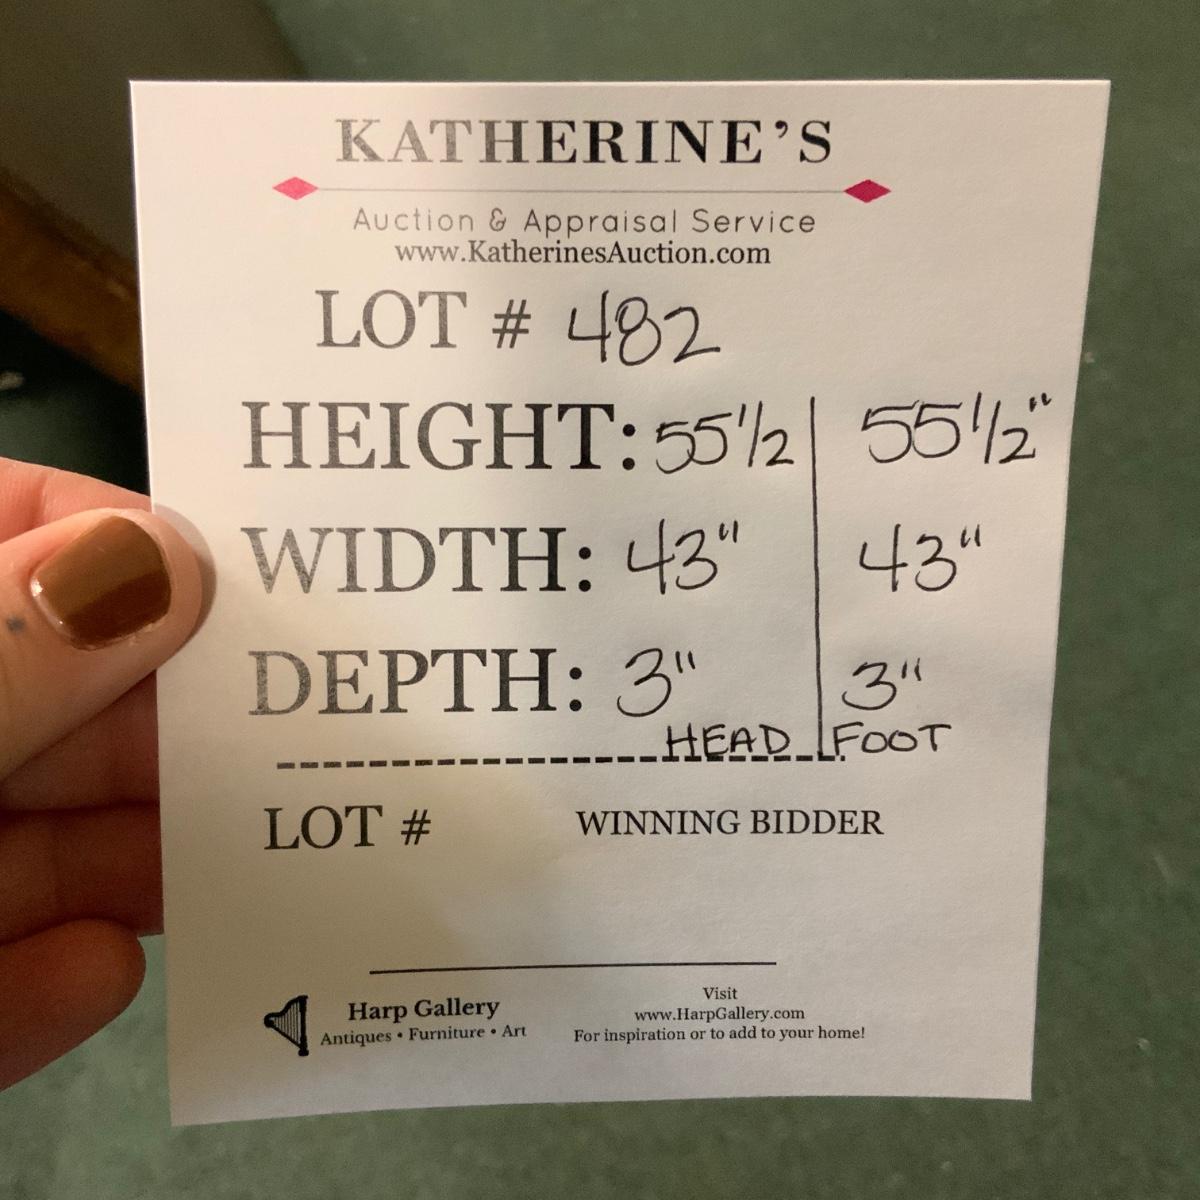 KATHERINE'S
Auction & Appraisal Service
www.KatherinesAuction.com
LOT # 482
HEIGHT: 55 1/2 | 55 1/2"
WIDTH: 43" | 43"
DEPTH: 3" | 3"
HEAD | FOOT
LOT # WINNING BIDDER
Harp Gallery
Antiques • Furniture • Art
Visit
www.HarpGallery.com
For inspiration or to add to your home!